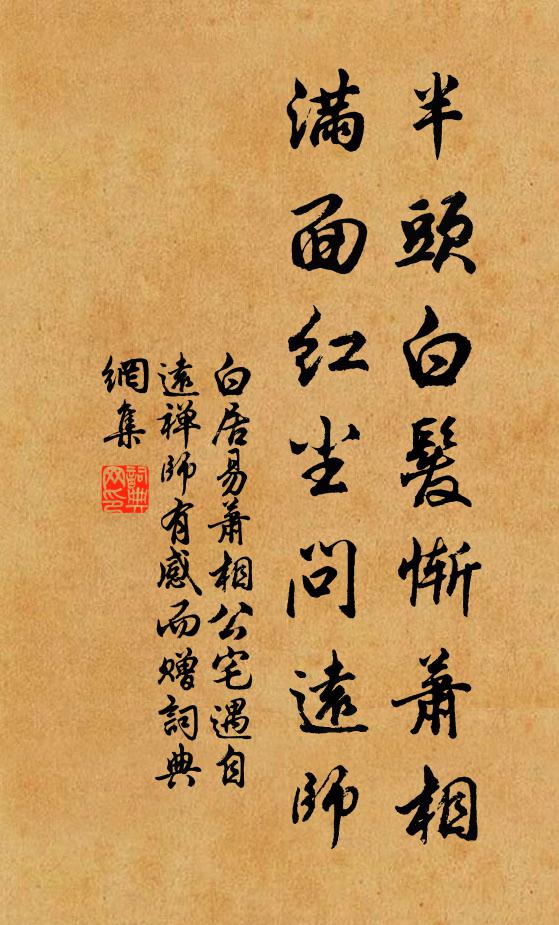 半頭白髮慚蕭相
滿面紅尘問遠師
白居易蕭相公宅遇自
遠禅師有感而贈詞典
網集
詞典
网印